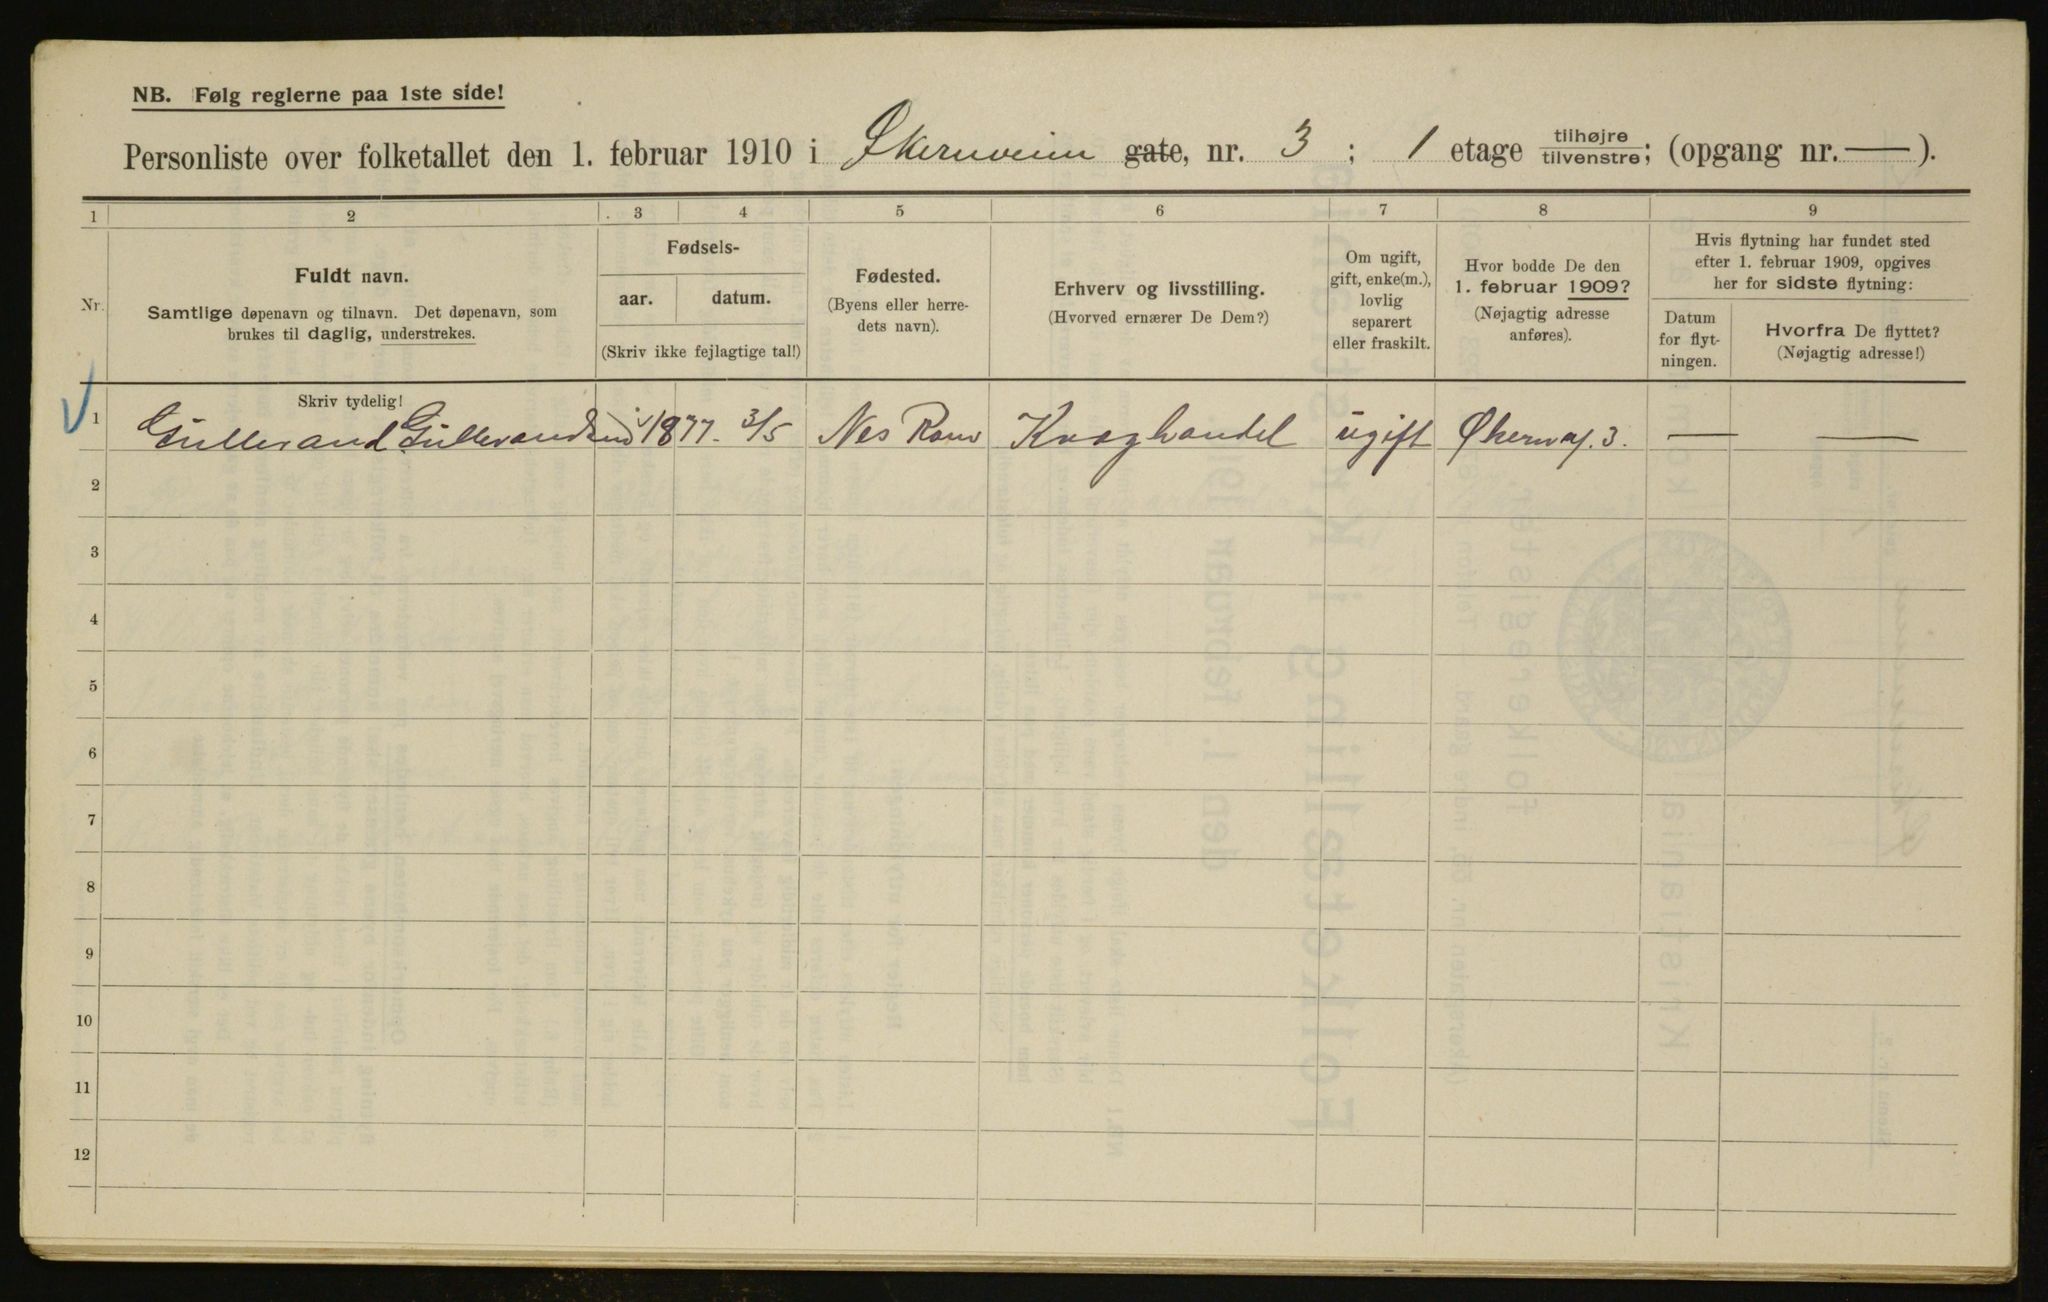 NB. Følg reglerne paa 1ste side!
Personliste over folketallet den 1. februar 1910 i Økernveien gate, nr. 3 ; 1 etage tilhøjre tilvenstre; (opgang nr. — ).
1 2 3 4 5 6 7 8 9
Nr.
Fuldt navn.
Samtlige døpenavn og tilnavn. Det døpenavn, som
brukes til daglig, understrekes.
Fødsels-
aar. datum.
(Skriv ikke fejlagtige tal!)
Fødested.
(Byens eller herre-
dets navn).
Erhverv og livsstilling.
(Hvorved ernærer De Dem?)
Om ugift,
gift, enke(m.),
lovlig
separert
eller fraskilt.
Hvor bodde De den
1. februar 1909?
(Nøjagtig adresse
anføres).
Hvis flytning har fundet sted
efter 1. februar 1909, opgives
her for sidste flytning:
Datum
for flyt-
ningen.
Hvorfra De flyttet?
(Nøjagtig adresse!)
Skriv tydelig!
1 Gulbrand Gulbrandsen 1877 3/5 Nes Rom Kvæghandel ugift Økernv. 3. — —
2
3
4
5
6
7
8
9
10
11
12